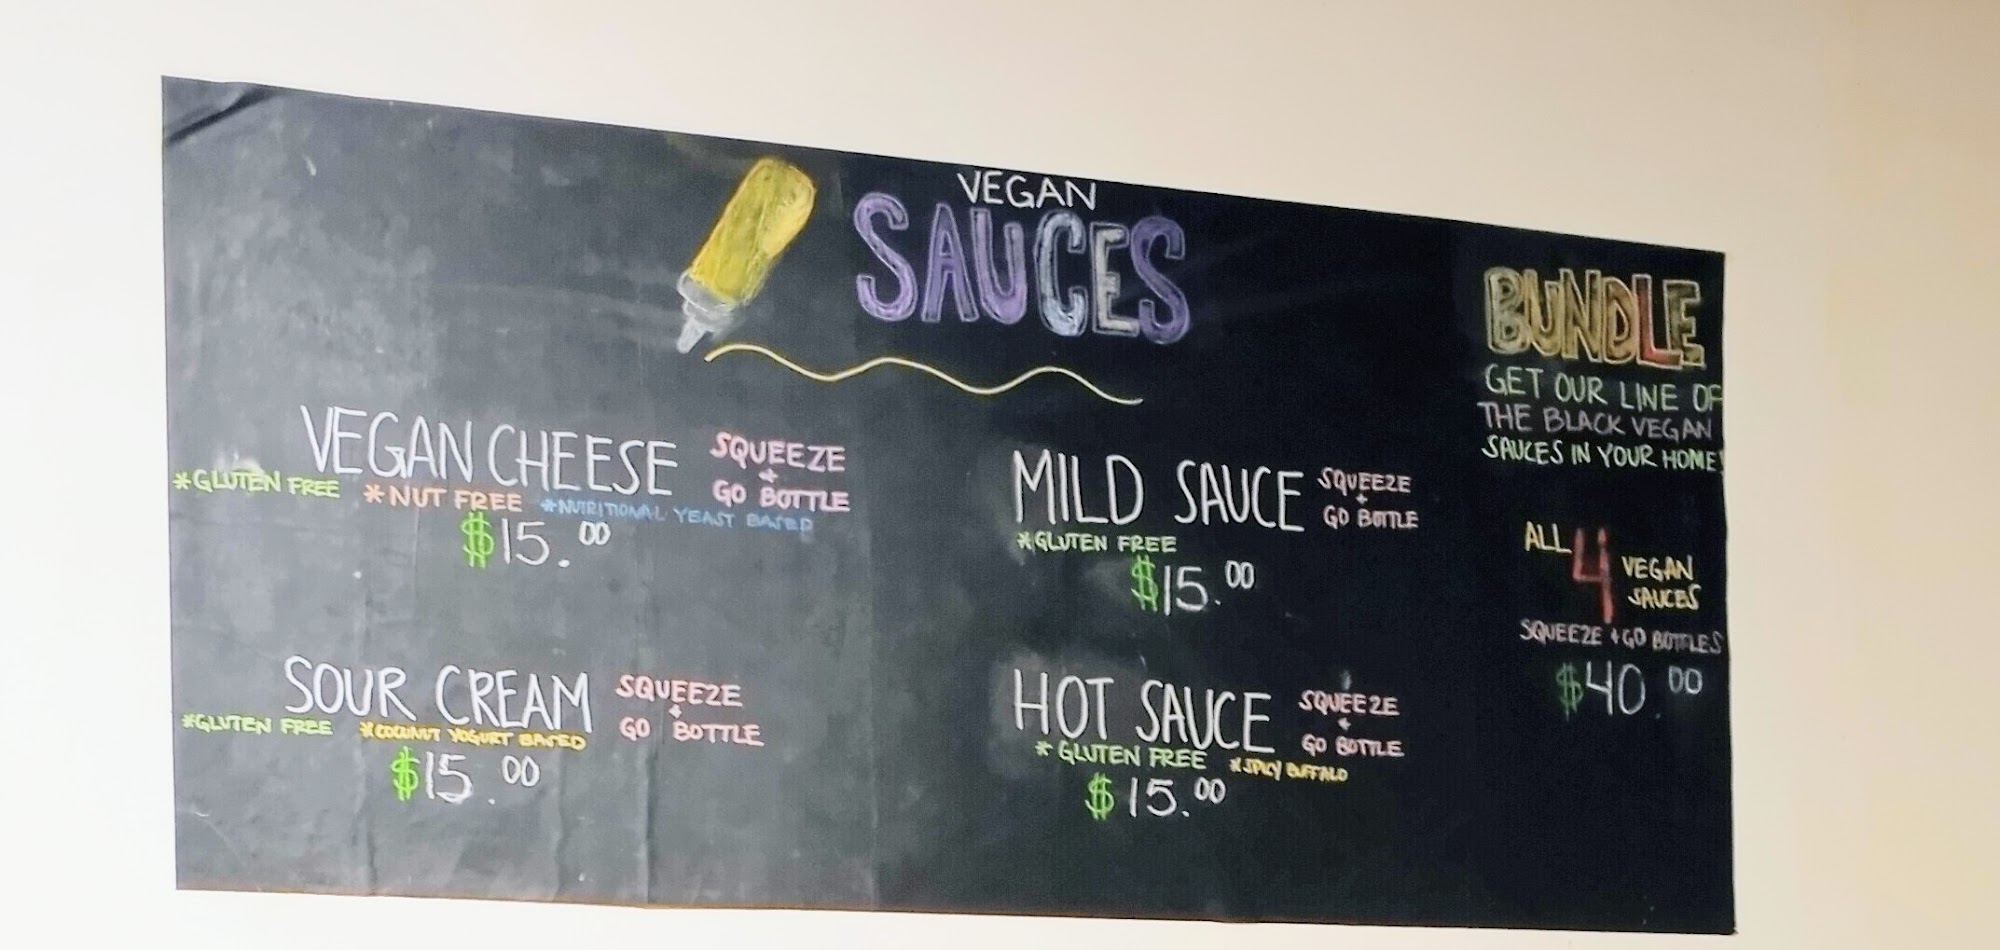 VEGAN
SAUCES
VEGAN CHEESE
SQUEEZE
+
GO BOTTLE
*GLUTEN FREE *NUT FREE *NUTRITIONAL YEAST BASED
$15.00
SOUR CREAM
SQUEEZE
+
GO BOTTLE
*GLUTEN FREE *COCONUT YOGURT BASED
$15.00
MILD SAUCE
SQUEEZE
+
GO BOTTLE
*GLUTEN FREE
$15.00
HOT SAUCE
SQUEEZE
+
GO BOTTLE
* GLUTEN FREE *SPICY BUFFALO
$15.00
BUNDLE
GET OUR LINE OF
THE BLACK VEGAN
SAUCES IN YOUR HOME!
ALL 4 VEGAN
SAUCES
SQUEEZE + GO BOTTLES
$40.00